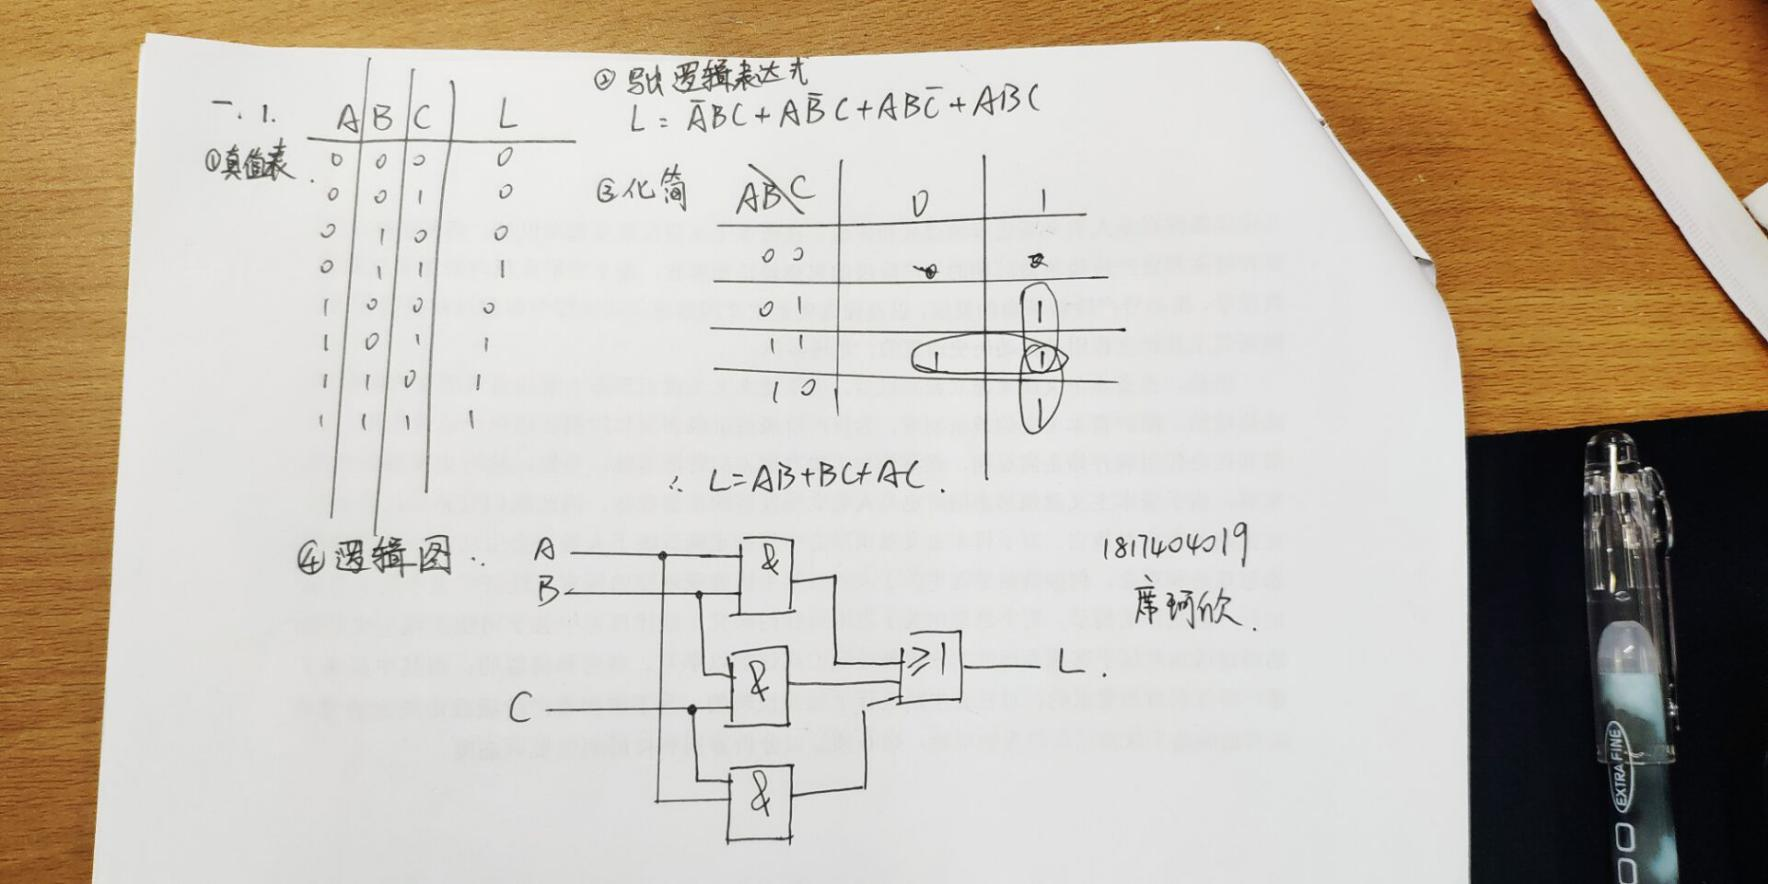 一.1.
①真值表
A B C L
0 0 0 0
0 0 1 0
0 1 0 0
0 1 1 1
1 0 0 0
1 0 1 1
1 1 0 1
1 1 1 1
②写出逻辑表达式
L = A̅BC+AB̅C+ABC̅+ABC
③化简
AB\C 0 1
00
01 1
11 1
10 1
∴ L=AB+BC+AC.
④逻辑图:
A
B
C
&
&
&
≥1
L.
1817404019
席珂欣.
EXTRA FINE